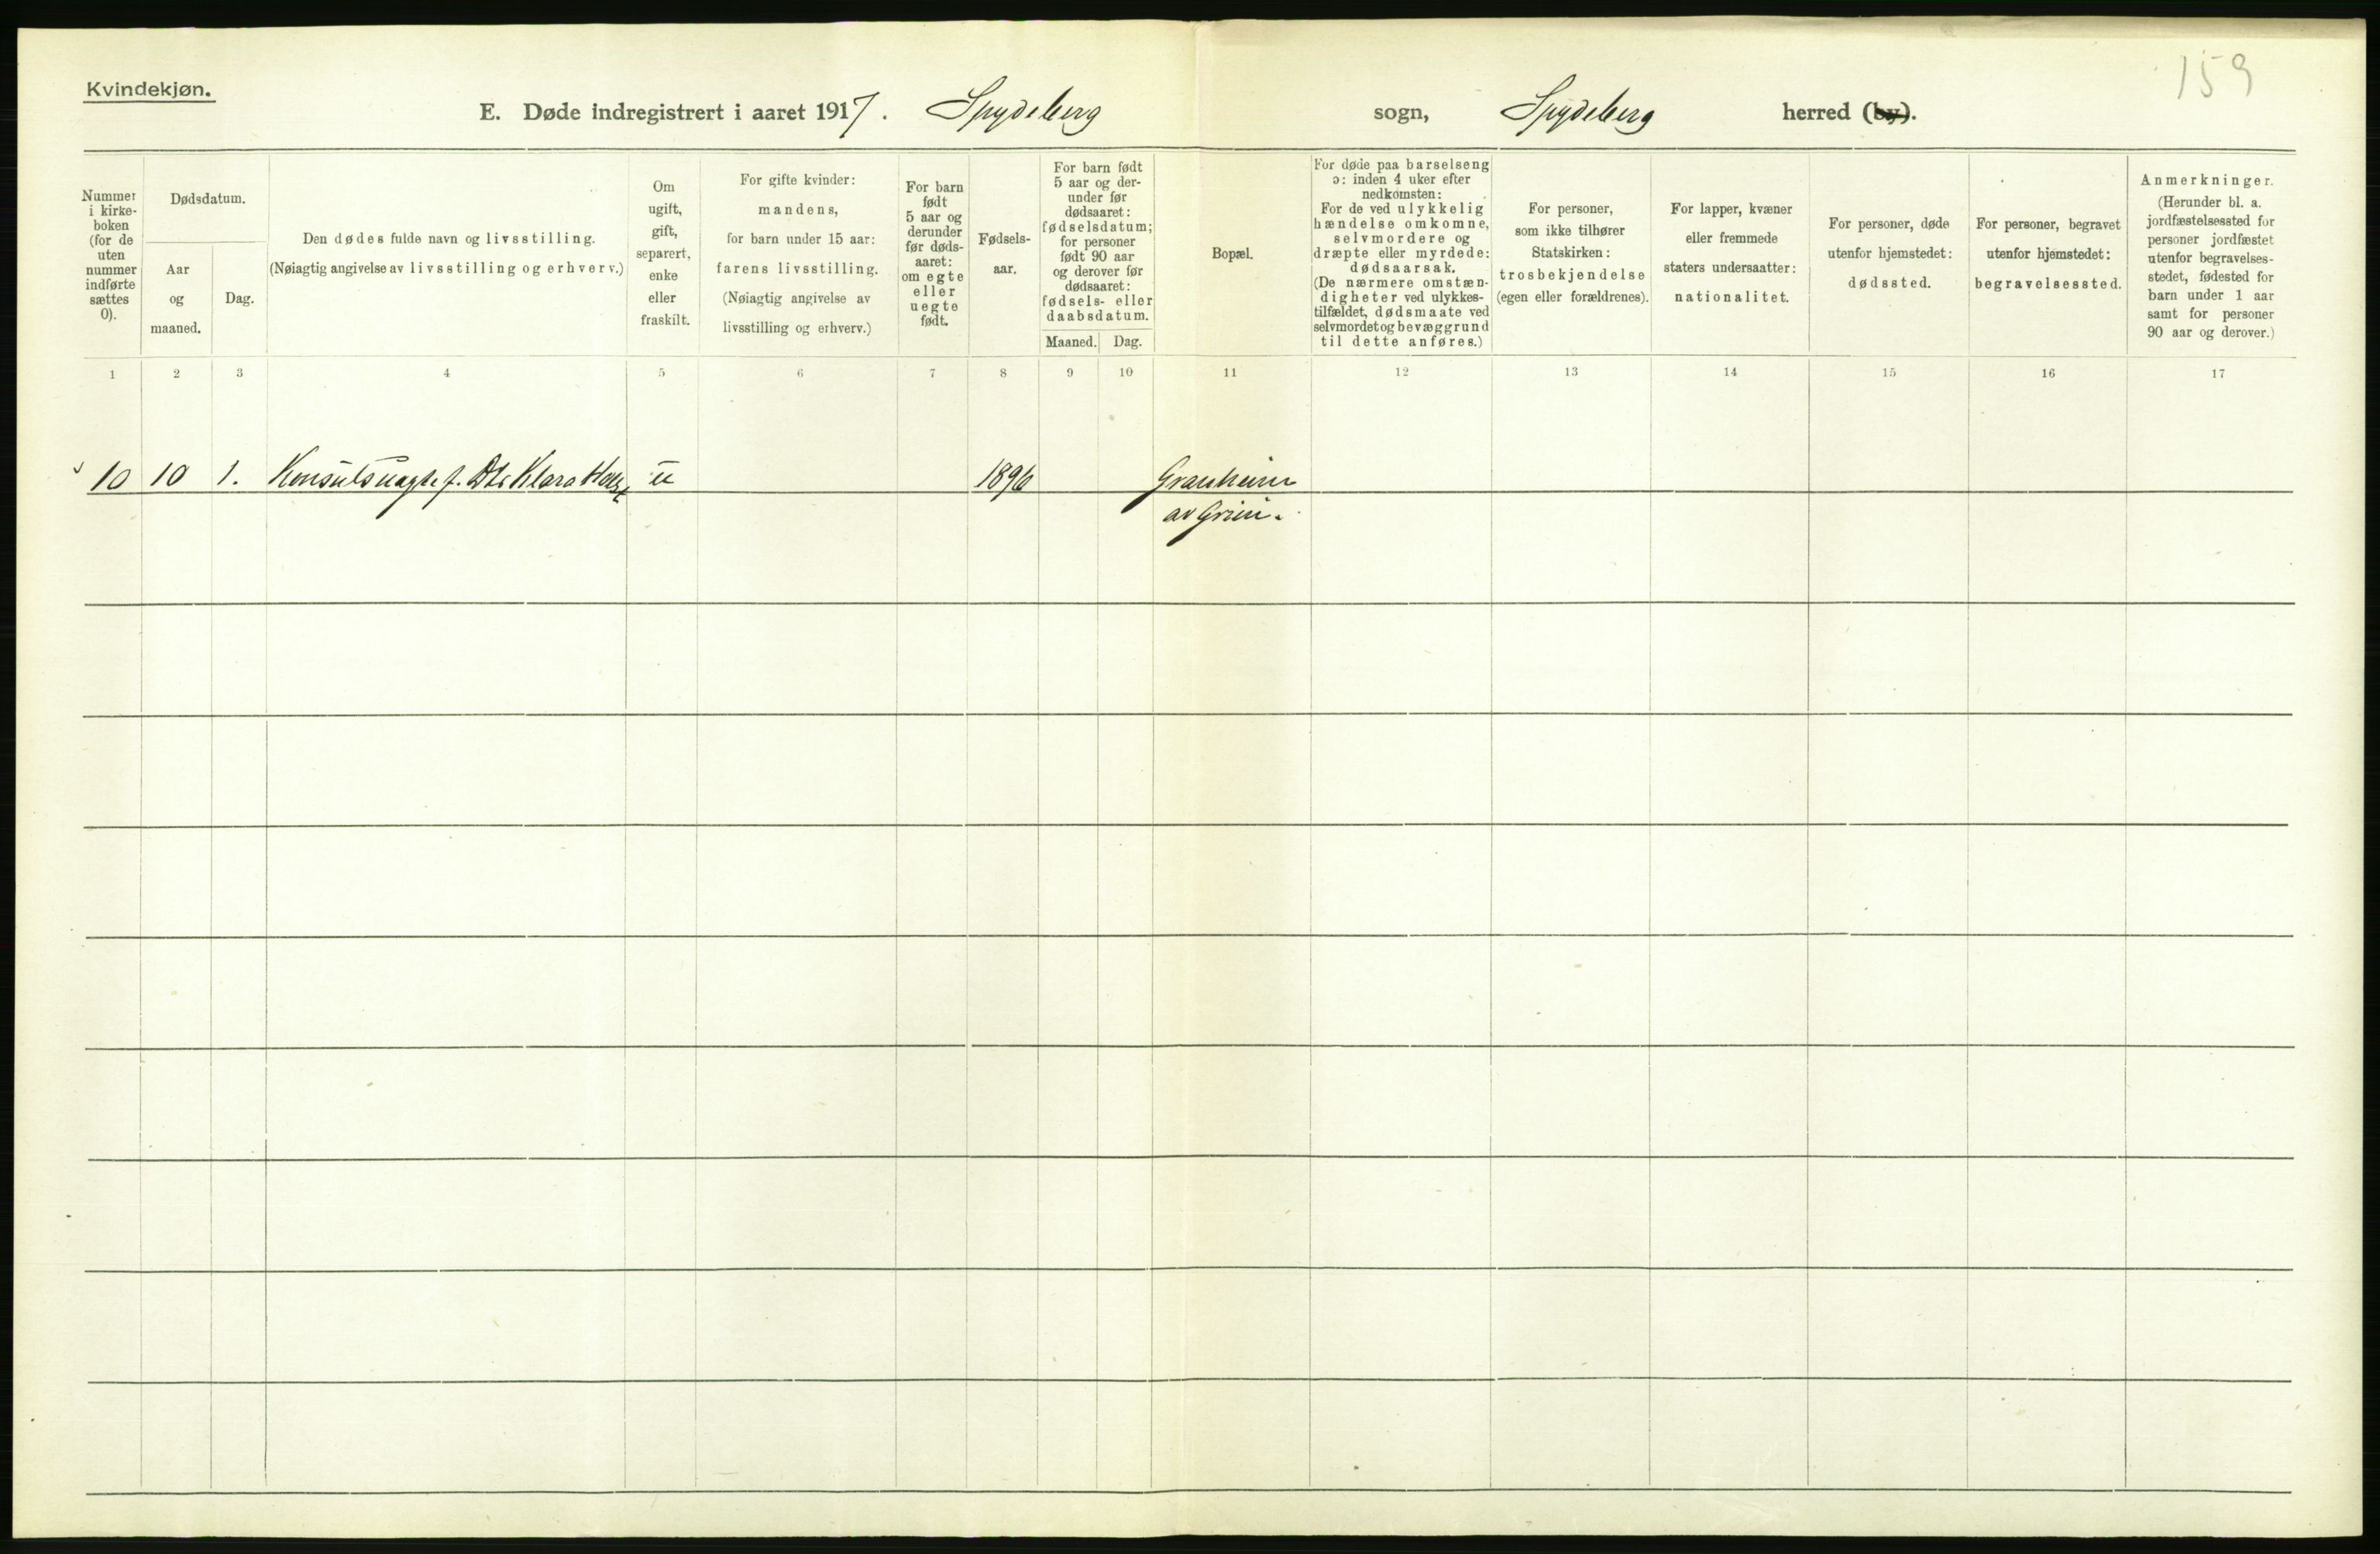 159
Kvindekjøn.
E. Døde indregistrert i aaret 1917. Spydeberg sogn, Spydeberg herred (by).
Nummer i kirke-boken (for de uten nummer indførte sættes 0).
Dødsdatum.
Aar og maaned.
Dag.
Den dødes fulde navn og livsstilling.
(Nøiagtig angivelse av livsstilling og erhverv.)
Om ugift, gift, separert, enke eller fraskilt.
For gifte kvinder:
mandens,
for barn under 15 aar:
farens livsstilling.
(Nøiagtig angivelse av
livsstilling og erhverv.)
For barn født 5 aar og derunder før døds-aaret: om egte eller uegte født.
Fødsels-aar.
For barn født
5 aar og der-
under før
dødsaaret:
fødselsdatum;
for personer
født 90 aar
og derover før
dødsaaret:
fødsels- eller
daabsdatum.
Maaned. Dag.
Bopæl.
For døde paa barselseng
ɔ: inden 4 uker efter
nedkomsten:
For de ved ulykkelig
hændelse omkomne,
selvmordere og
dræpte eller myrdede:
dødsaarsak.
(De nærmere omstæn-
digheter ved ulykkes-
tilfældet, dødsmaate ved
selvmordet og bevæggrund
til dette anføres.)
For personer,
som ikke tilhører
Statskirken:
trosbekjendelse
(egen eller forældrenes).
For lapper, kvæner
eller fremmede
staters undersaatter:
nationalitet.
For personer, døde
utenfor hjemstedet:
dødssted.
For personer, begravet
utenfor hjemstedet:
begravelsessted.
Anmerkninger.
(Herunder bl. a.
jordfæstelsessted for
personer jordfæstet
utenfor begravelses-
stedet, fødested for
barn under 1 aar
samt for personer
90 aar og derover.)
1 2 3 4 5 6 7 8 9 10 11 12 13 14 15 16 17
10 10 1. Klara u 1896 Granheim
av